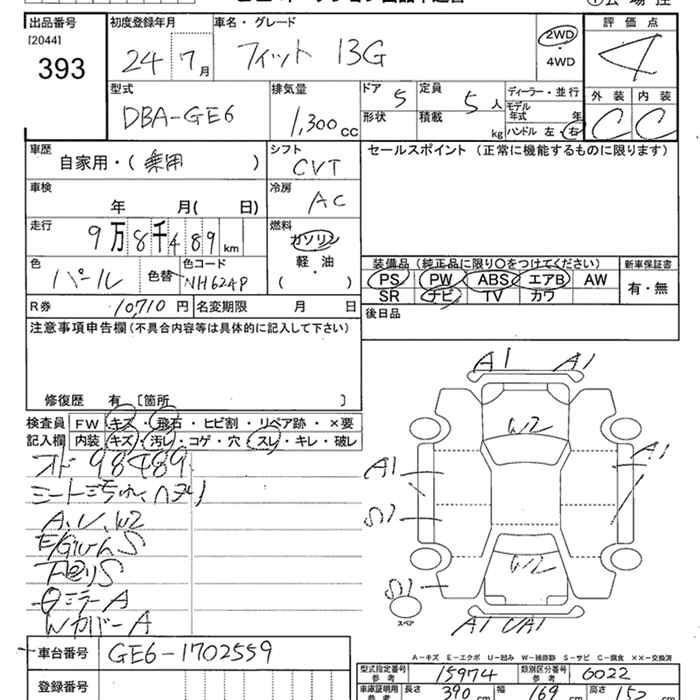 出品番号 初度登録年月 車名・グレード 評価点
[2044]
393 24 7月 フィット 13G 2WD・4WD 4
型式 排気量 ドア 5 定員 5人 ディーラー・並行 外装 内装
DBA-GE6 1,300cc 形状 積載 kg モデル年式 年 C C
ハンドル 左 右
車歴 シフト セールスポイント(正常に機能するものに限ります)
自家用・(乗用) CVT
車検 冷房
年 月(日) AC
走行 燃料
9万8千489km ガソリン
軽・油
・
( )
色 色替 色コード 装備品(純正品に限り○をつけてください) 新車保証書
パール NH624P PS PW ABS エアB AW 有・無
SR ナビ TV カワ
R券 10,710円 名変期限 月 日 後日品
注意事項申告欄(不具合内容等は具体的に記入して下さい)
修復歴 有 [箇所 ]
検査員 FW キズ・飛石・ヒビ割・リペア跡・×要
記入欄 内装 キズ・汚レ・コゲ・穴・スレ・キレ・破レ
オド 98489
A、U、W2
下回りS
ミラーA
WカバーA
A1 A1
W2
A1 A1
W2
スペア
A1 UA1
A-キズ E-エクボ U-凹み W-補修跡 S-サビ C-腐食 ××-交換済
車台番号 GE6-1702559
型式指定番号 参考 15974 類別区分番号 参考 6022
登録番号
車庫証明用 参考 長さ 390cm 幅 169cm 高さ 152cm